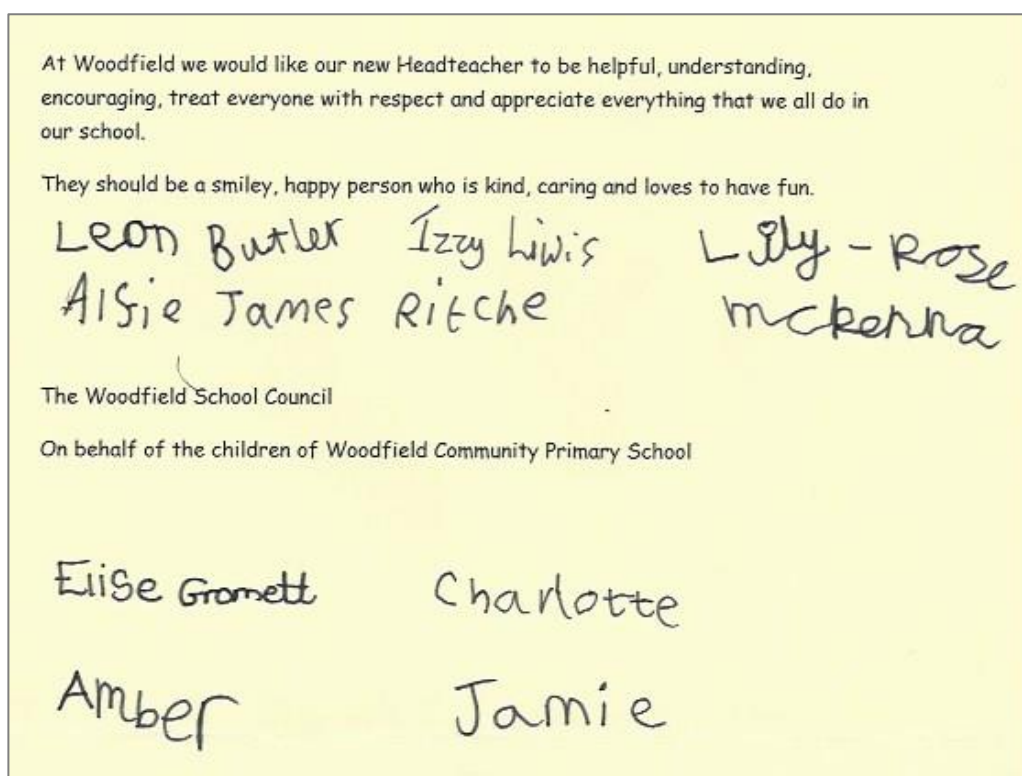 At Woodfield we would like our new Headteacher to be helpful, understanding,
encouraging, treat everyone with respect and appreciate everything that we all do in
our school.
They should be a smiley, happy person who is kind, caring and loves to have fun.
Leon Butler Izzy Liwis Lily-Rose
Alfie James Ritche mckenna
The Woodfield School Council
On behalf of the children of Woodfield Community Primary School
Elise Charlotte
Amber Jamie